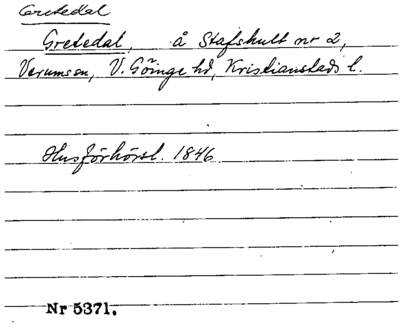 Gretedal
Gretedal, å Stafshult nr 2,
Verumssn, V. Göinge hd, Kristianstads l.
Husförhörsl. 1846
Nr 5371.